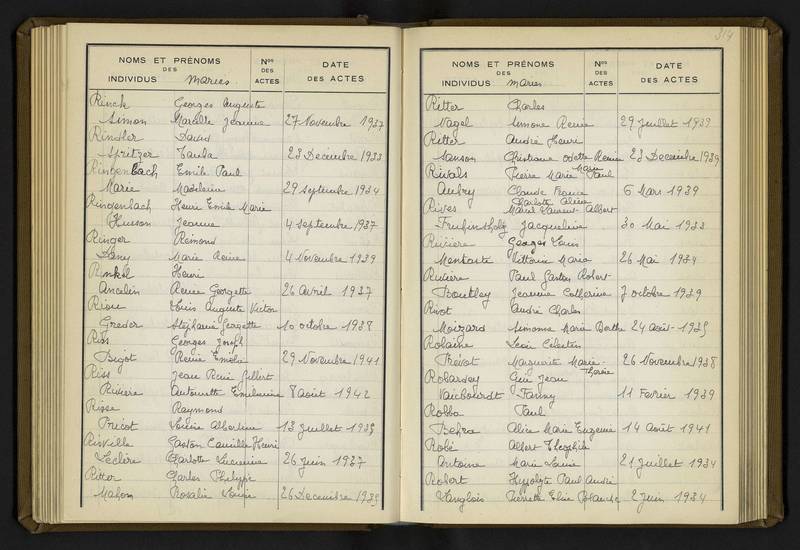 NOMS ET PRÉNOMS DES INDIVIDUS Maries Nos DES ACTES DATE DES ACTES
Rinck Georges Auguste
Simon Marcelle Jeanne 27 Novembre 1937
Rindler David
Spritzer Paula 23 Decembre 1933
Ringenbach Emile Paul
Marie Madeleine 29 Septembre 1934
Ringenbach Henri Emile Marie
Husson Jeanne 4 Septembre 1937
Ringer Reimond
Marie Reine 4 Novembre 1939
Rinkel Henri
Ancelin Renee Georgette 26 Avril 1937
Riou Louis Auguste Victor
Greder Stephanie Georgette 10 octobre 1938
Ris Georges Joseph
Bigot Renee Emilie 29 Novembre 1941
Riss Jean René Gilbert
Riviere Antoinette 8 aout 1942
Risse Raymond
Pricot Louise Albertine 13 Juillet 1935
Risville Gaston Camille Henri
Leclère Charlotte Lucienne 26 Juin 1937
Ritter Charles Philippe
Mahon Rosalie Louise 26 Decembre 1935
314
NOMS ET PRÉNOMS DES INDIVIDUS Maries Nos DES ACTES DATE DES ACTES
Ritter Charles
Nagel Simone Renée 29 Juillet 1939
Ritter André Henri
Sanson Christiane Odette Renée 23 Decembre 1939
Rivals Pierre Marie Marie Paul
Aubry Claude France 6 Mars 1939
Charlotte Aline
Rives Marie Laurent Albert
Jacqueline 30 Mai 1933
Riviere Georges Louis
Vittoria Maria 26 Mai 1934
Riviere Paul Gaston Robert
Boutley Jeanne Catherine 7 octobre 1939
Rivot André Charles
Moizard Simonne Marie Berthe 24 août 1935
Rolaine Léon Célestin
Prévot Marguerite Marie-Thérèse 26 Novembre 1938
Robardey Guy Jean
Vaubourdt Fanny 11 Fevrier 1939
Robba Paul
Befra Alice Marie Eugenie 14 Août 1941
Robé Albert Théophile
Antoine Marie Louise 21 Juillet 1934
Robert Hyppolyte Paul André
Langlois Pierrette Elise Blanche 2 Juin 1934